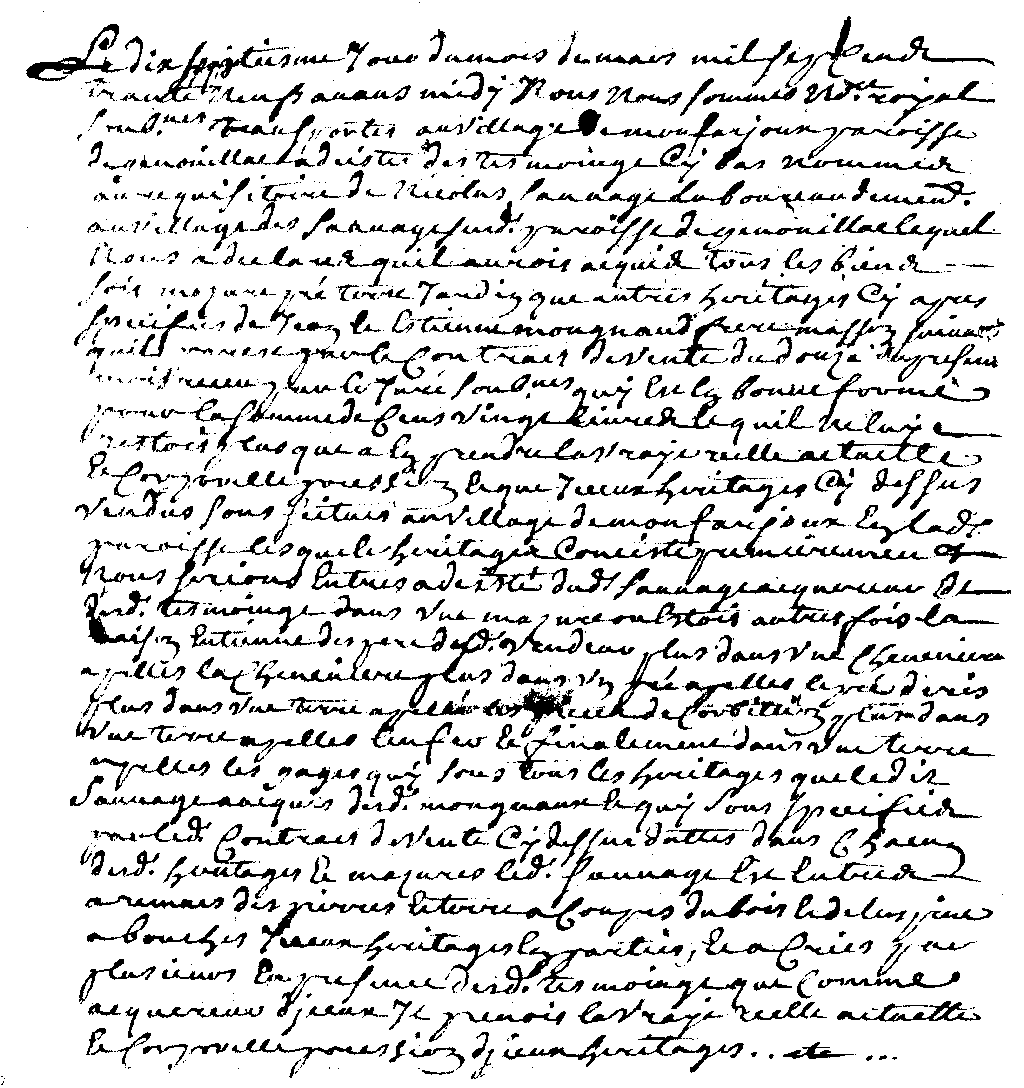 Le dix septiesme Jour du mois de mars mil sept Cends
trante Neuf avans midy Nous Nous sommes Nore. royal
soubnes. transportes au village de monfanjoux paroisse
de genouillac adciste des tesmoings Cy bas nommes
au requisitoire de Nicolas Sauvage laboureur demend.
au village des Sauvages sud. paroisse de genouillac lequel
Nous a declare quil aurois acquis tous les biens
sois mazure pré terre Jardin que autres heritages Cy apres
speciffies de Jean et Etienne mougnaud frere masson suivant
quil apert par le Contract de vente du douze du presens
mois receu par le Juré soubnes quy Est en bonne forme
pour la somme de Cens vingt livres et quil ne luy
restois plus que a en prendre la vraye reelle actuelle
Et Corporelle pocession Et que Jceux heritages Cy dessus
vendus sons scitues au village de monfanjoux En lad.
paroisse lesquels heritages Conciste premieremen
Nous serions Entres adciste dud. Sauvage acquereur Et
desd. tesmoings dans une mazure ou Estois autres fois la
maison Entienne des pere desd. vendeur plus dans une Cheneviere
apelles la Cheneviere plus dans un pré apelles le pré
plus dans une terre apellé de plus dans
une terre apelles Et finalement dans une terre
apelles les quy sons tous les heritages que le dit
Sauvage a acquis desd. mougnaux Et quy sons speciffies
par led. Contract de vente Cy dessus dattes dans Chacun
desd. heritages Et mazures led. Sauvage Est Entres
a remues des pierres Et terre a Coupes du bois Et
a bouches Jceux heritages En parties, Et a Cries par
plusieurs En presence desd. tesmoings que Comme
acquereur djceux Jl prenois la vraye reelle actuelle
Et Corporelle pocession djceux heritages .. etc ...